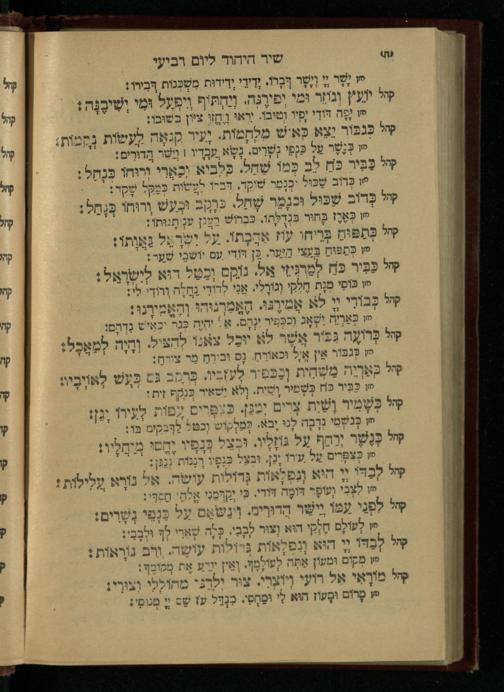 שיר היהוד ליום רביעי
חזן יָשָׁר יְיָ וְיָשָׁר דְּבָרוֹ. יְדִידֵי יְדִידוּת מִשְׁכְּנוֹת דְּבִירוֹ:
קהל יוֹעֵץ וְגוֹזֵר וּמִי יְפִירֶנָּה. וְיַחְתּוֹף וְיִפְעַל וּמִי יְשִׁיבֶנָּה:
חזן יָפָה דוֹדִי יָפְיוֹ וְטוּבוֹ. יִרְאוּ וְיֶחֱזוּ צִיּוֹן בְּשׁוּבוֹ:
קהל כְּגִבּוֹר יֵצֵא כְּאִישׁ מִלְחָמוֹת. יָעִיר קִנְאָה לַעֲשׂוֹת נְקָמוֹת:
חזן כְּנֶשֶׁר עַל כַּנְפֵי נְשָׁרִים. נָשָׂא עֲבָדָיו וְיִשַּׁר הֲדוּרִים:
קהל כַּבִּיר כֹּחַ לֵב כְּמוֹ שַׁחַל. כְּלָבִיא וְכָאֲרִי וְרוּחוֹ כְּנָחַל:
חזן כְּדוֹב שַׁכּוּל וּכְנָמֵר שׁוֹקֵד. דְּבָרוֹ לַעֲשׂוֹת כְּמַקֵּל שָׁקֵד:
קהל כְּדוֹב שַׁכּוּל וּכְנָמֵר שַׁחַל. כְּרָקָב וּכְעָשׁ וְרוּחוֹ כְּנָחַל:
חזן כְּאֶרֶז בָּחוּר בִּגְדֻלָּתוֹ. כִּבְרוֹשׁ רַעֲנָן עַנְוְתָנוּתוֹ:
קהל כְּתַפּוּחַ בְּרֵיחוֹ עוֹז אַהֲבָתוֹ. עַל יִשְׂרָאֵל גַּאֲוָתוֹ:
חזן כְּתַפּוּחַ בַּעֲצֵי הַיַּעַר. כֵּן דּוֹדִי עִם יוֹשְׁבֵי שַׁעַר:
קהל כַּבִּיר כֹּחַ לְמַרְגִּיזֵי אֵל. נוֹקֵם וְכַטַּל הוּא לְיִשְׂרָאֵל:
חזן כּוֹסִי מְנָת חֶלְקִי וְגוֹרָלִי. אֲנִי לְדוֹדִי נַחֲלָה וְדוֹדִי לִי:
קהל כְּבוֹדִי יְיָ לֹא אֲמִירֶנּוּ. הֶאֱמַרְנוּהוּ וְהֶאֱמִירָנוּ:
חזן כְּאַרְיֵה יִשְׁאָג וְכִכְפִיר יִנְהָם.
קהל כְּרוֹעֶה גִּבּוֹר אֲשֶׁר לֹא יוּכַל צֹאנוֹ לְהַצִּיל. וְהָיָה לְמַאֲכָל:
חזן כְּגִבּוֹר אֵין אֱיָל וּכְאוֹרֵחַ. גַּם וּבוֹרֵחַ
קהל כְּאַרְיֵה מַשְׁחִית וְכִכְפִיר לְעוֹזְבָיו. כְּרָקָב גַּם כָּעָשׁ לְאוֹיְבָיו:
חזן כַּבִּיר כֹּחַ כְּשָׁמִיר וָשַׁיִת. וְלֹא יַשְׁאִיר כְּנוֹקֵף זָיִת:
קהל כְּשָׁמִיר וְשַׁיִת צָרִים יְמַגֵּן. כְּצִפֳּרִים עָפוֹת לְעִירוֹ יָגֵן:
חזן כְּגִשְׁמֵי נְדָבָה לָנוּ יָבֹא. כְּמַלְקוֹשׁ וְכַטַּל לַדְּבֵקִים בּוֹ:
קהל כְּנֶשֶׁר יְרַחֵף עַל גּוֹזָלָיו. וּבְצֵל כְּנָפָיו יֶחֱסוּ מְיַחֲלָיו:
חזן כְּצִפֳּרִים עַל עִירוֹ יָגֵן. וּבְצֵל כְּנָפָיו רְנָנוֹת נְנַגֵּן:
קהל לְבַדּוֹ יְיָ הוּא וְנִפְלָאוֹת גְּדוֹלוֹת עוֹשֶׂה. אֵל נוֹרָא עֲלִילוֹת:
חזן לִצְבִי וְעוֹפֶר דּוֹמֶה דוֹדִי. כִּי יְקַדְּמֵנִי אֱלֹהֵי חַסְדִּי:
קהל לִפְנֵי עַמּוֹ יְיַשֵּׁר הֲדוּרִים. וִינַשְּׂאֵם עַל כַּנְפֵי נְשָׁרִים:
חזן לְעוֹלָם חֶלְקִי הוּא וְצוּר לְבָבִי. כָּלָה שְׁאֵרִי לְךָ וּלְבָבִי:
קהל לְבַדּוֹ יְיָ הוּא וְנִפְלָאוֹת גְּדוֹלוֹת עוֹשֶׂה. וְרַב נוֹרָאוֹת:
חזן מָקוֹם וּמָעוֹן אַתָּה לְעוֹלָמֶךָ. וְאֵין יוֹדֵעַ אֶת מְקוֹמֶךָ:
קהל מוֹרָאִי אֵל רוֹעִי וְיוֹצְרִי. צוּר יְלָדַנִי מְחוֹלְלִי וְצוּרִי:
חזן מָרוֹם וּמָעוֹז הוּא לִי וּמַחֲסִי. כְּמִגְדַּל עֹז שֵׁם יְיָ מְנוּסִי: